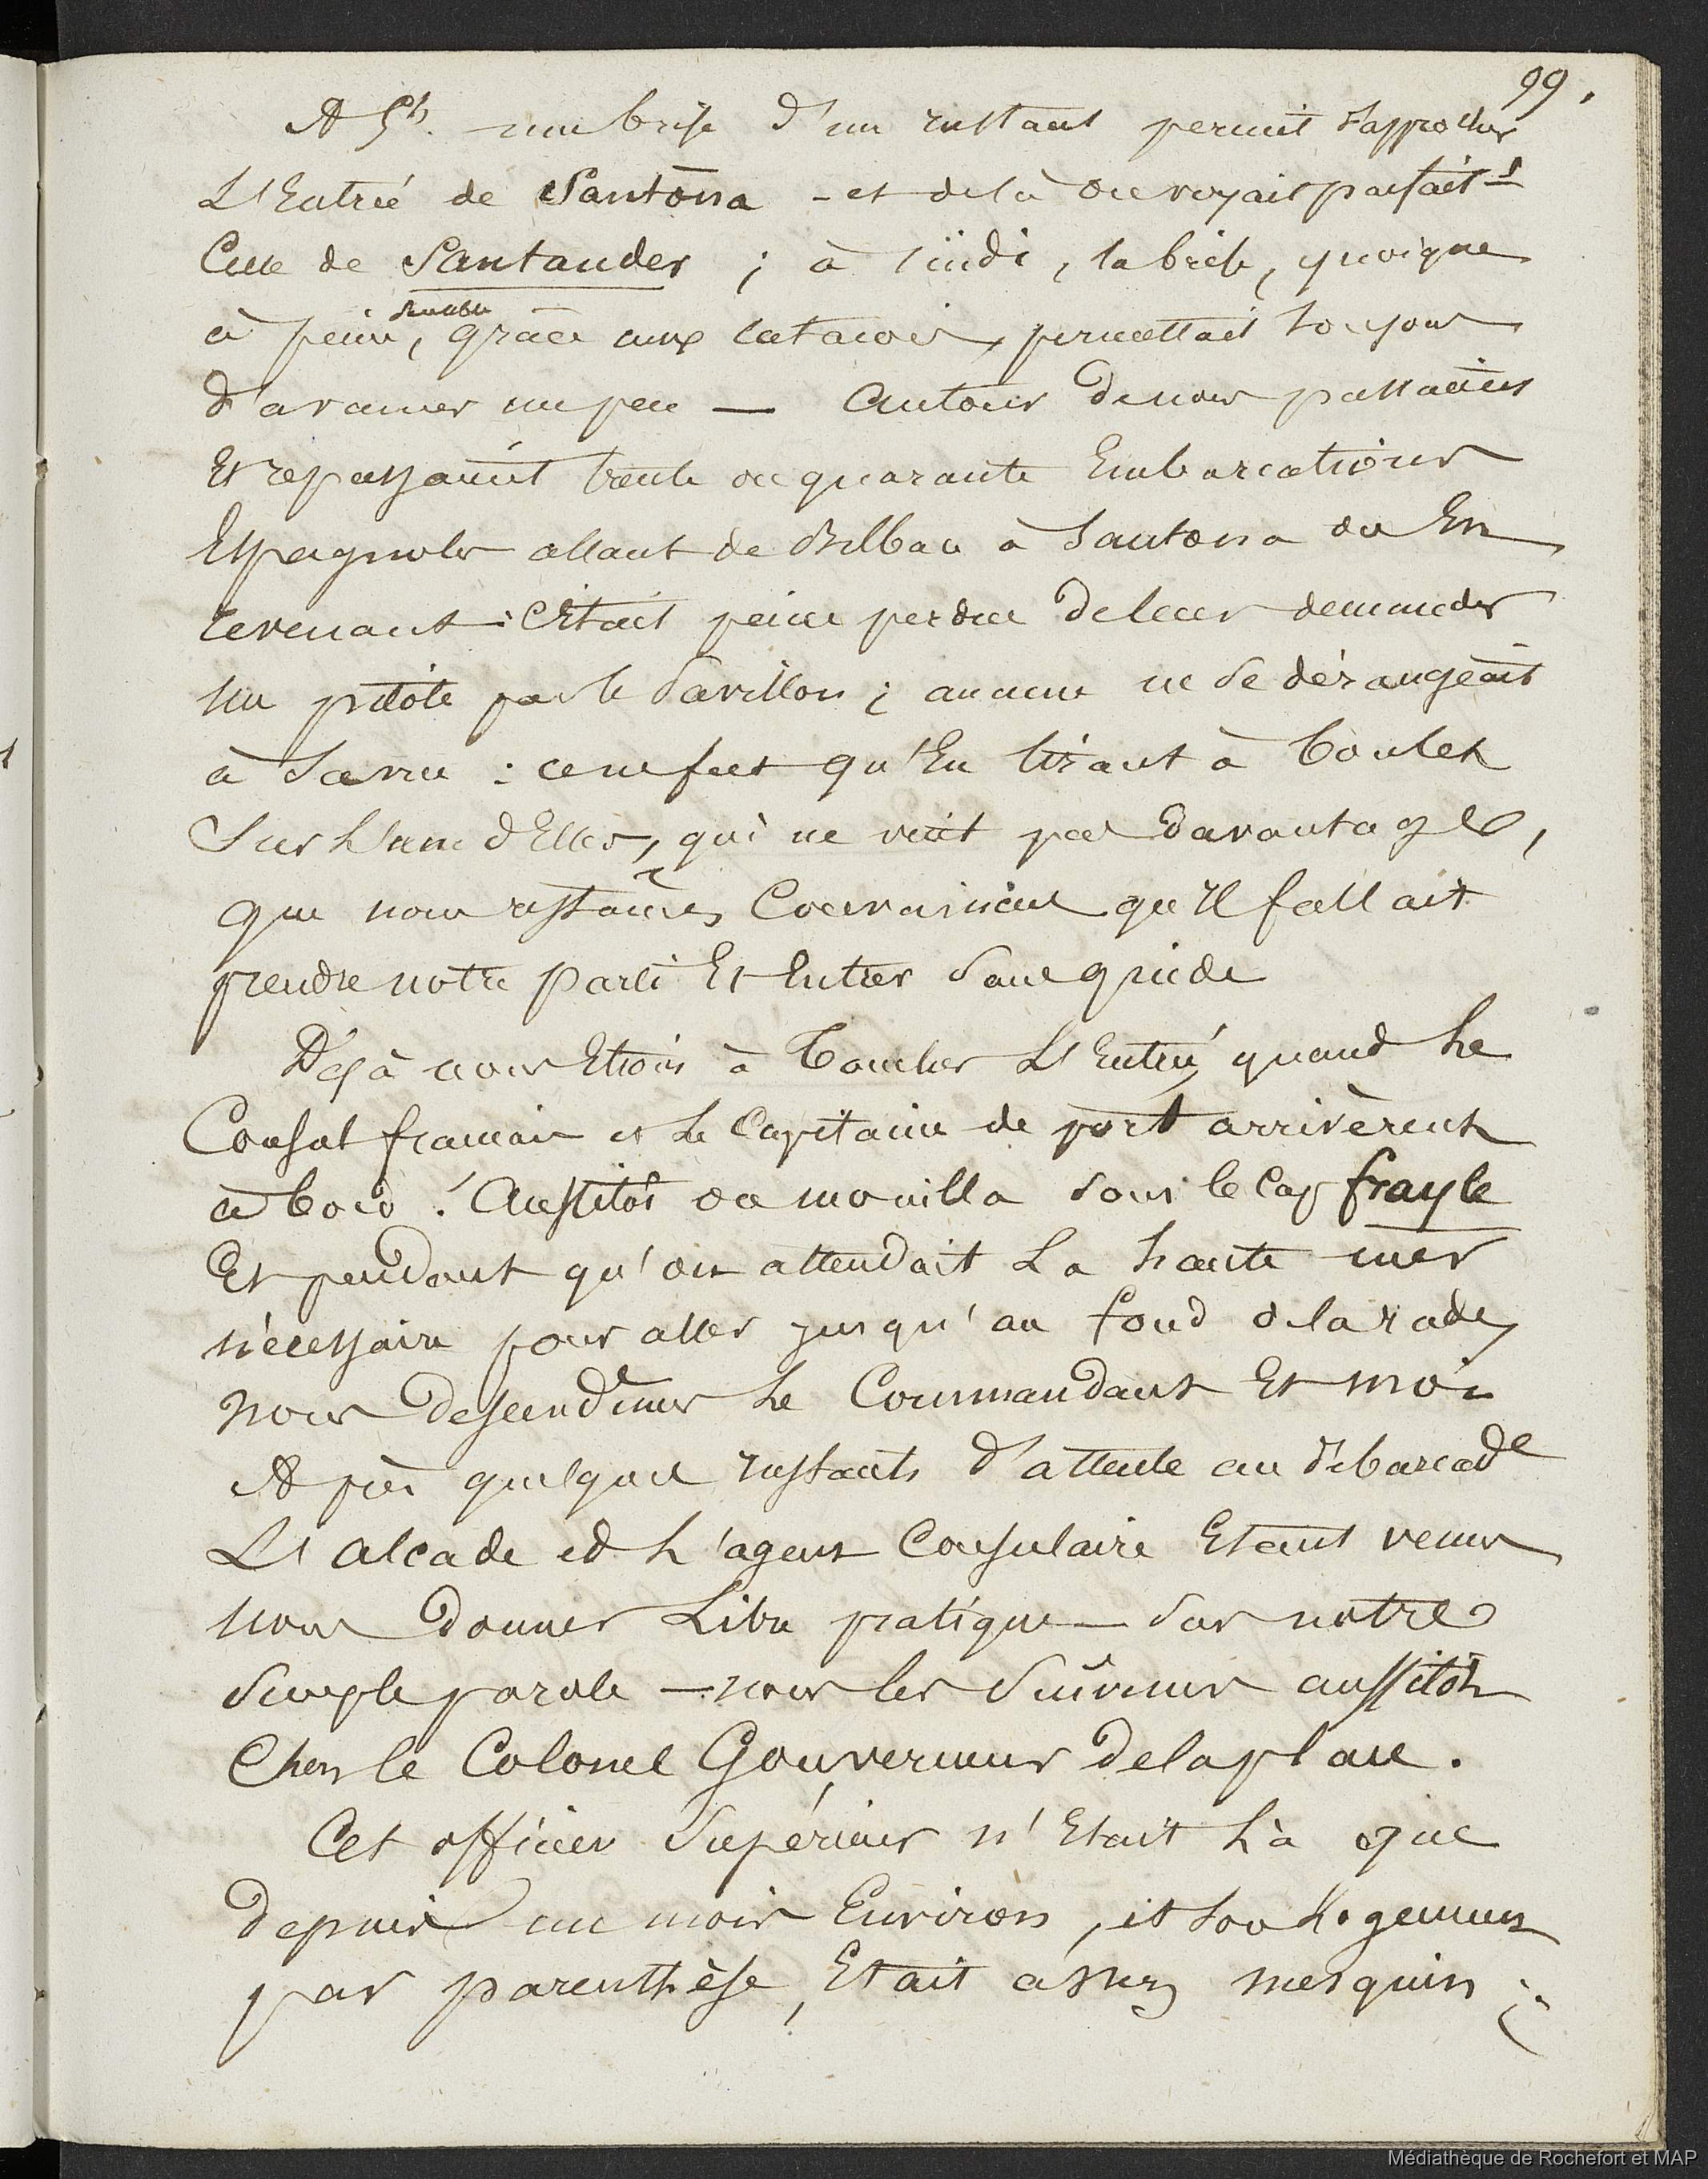 99.
A 5h. une brise d'un instant permit d'approcher
L'Entrée de Santona - et de là on voyait parfait t
Celle de Santander ; à midi, la brise, quoique
à peine sensible, grâce aux catacois, permettait toujours
d'avancer un peu — Autour de nous passaient
Et repassaient trente ou quarante Embarcations
Espagnoles allant de Bilbau à Santona ou En
revenant : C'Etait peine perdue de leur demander
un pilote par le Pavillon ; aucune ne se dérangeait
à Savue : ce ne fut qu'En tirant à boulet
Sur L'une d'Elles, qui ne vint pas davantage,
que nous restâmes Convaincus qu'Il fallait
prendre notre parti Et Entrer Sans guide
Déjà nous Etions à toucher L'Entrée quand Le
Consul français et Le Capitaine de port arrivèrent
à bord. Aussitôt on mouilla sous le Cap frayle
Et pendant qu'on attendait La haute mer
nécessaire pour aller jusqu'au fond d la rade,
nous descendimes Le Commandant Et moi
Après quelques Instants d'attente au débarcade
L'alcade et L'agent Consulaire Etant venus
nous donner Libre pratique — sur notre
Simple parole — nous les Suivimes aussitôt
Chez le Colonel Gouverneur de la place.
Cet officier Supérieur n'Etait Là que
depuis un mois Environ, et son Logement
par parenthèse, Etait assez mesquin ;
Médiathèque de Rochefort et MAP